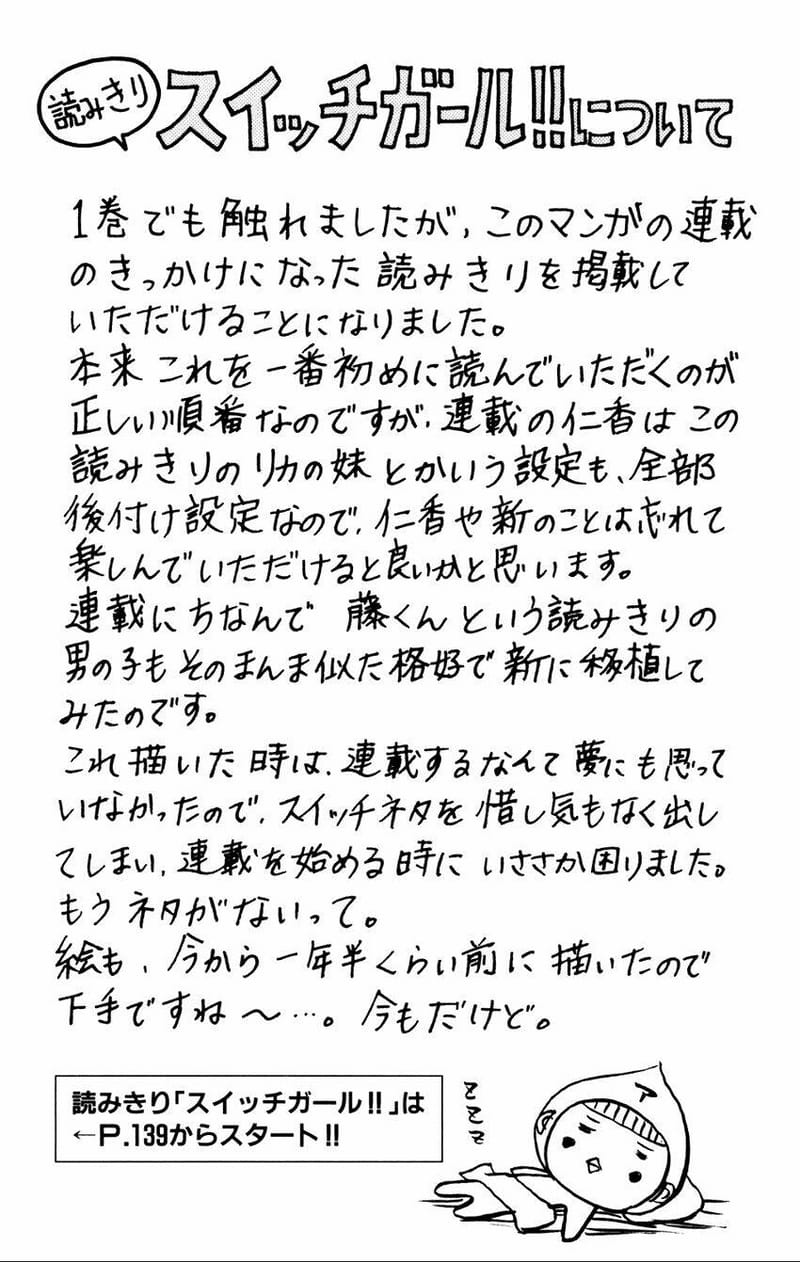 読みきり
スイッチガール!!について
1巻でも触れましたが、このマンガの連載
のきっかけになった読みきりを掲載して
いただけることになりました。
本来これを一番初めに読んでいただくのが
正しい順番なのですが、連載の仁香はこの
読みきりのリカの妹とかいう設定も、全部
後付け設定なので、仁香や新のことは忘れて
楽しんでいただけると良いかと思います。
連載にちなんで 藤くんという読みきりの
男の子もそのまんま似た格好で新に移植して
みたのです。
これ描いた時は、連載するなんて夢にも思って
いなかったので、スイッチネタを惜し気もなく出し
てしまい、連載を始める時にいささか困りました。
もうネタがないって。
絵も、今から一年半くらい前に描いたので
下手ですね〜…。今もだけど。
読みきり「スイッチガール!!」は
←P.139からスタート!!
ア